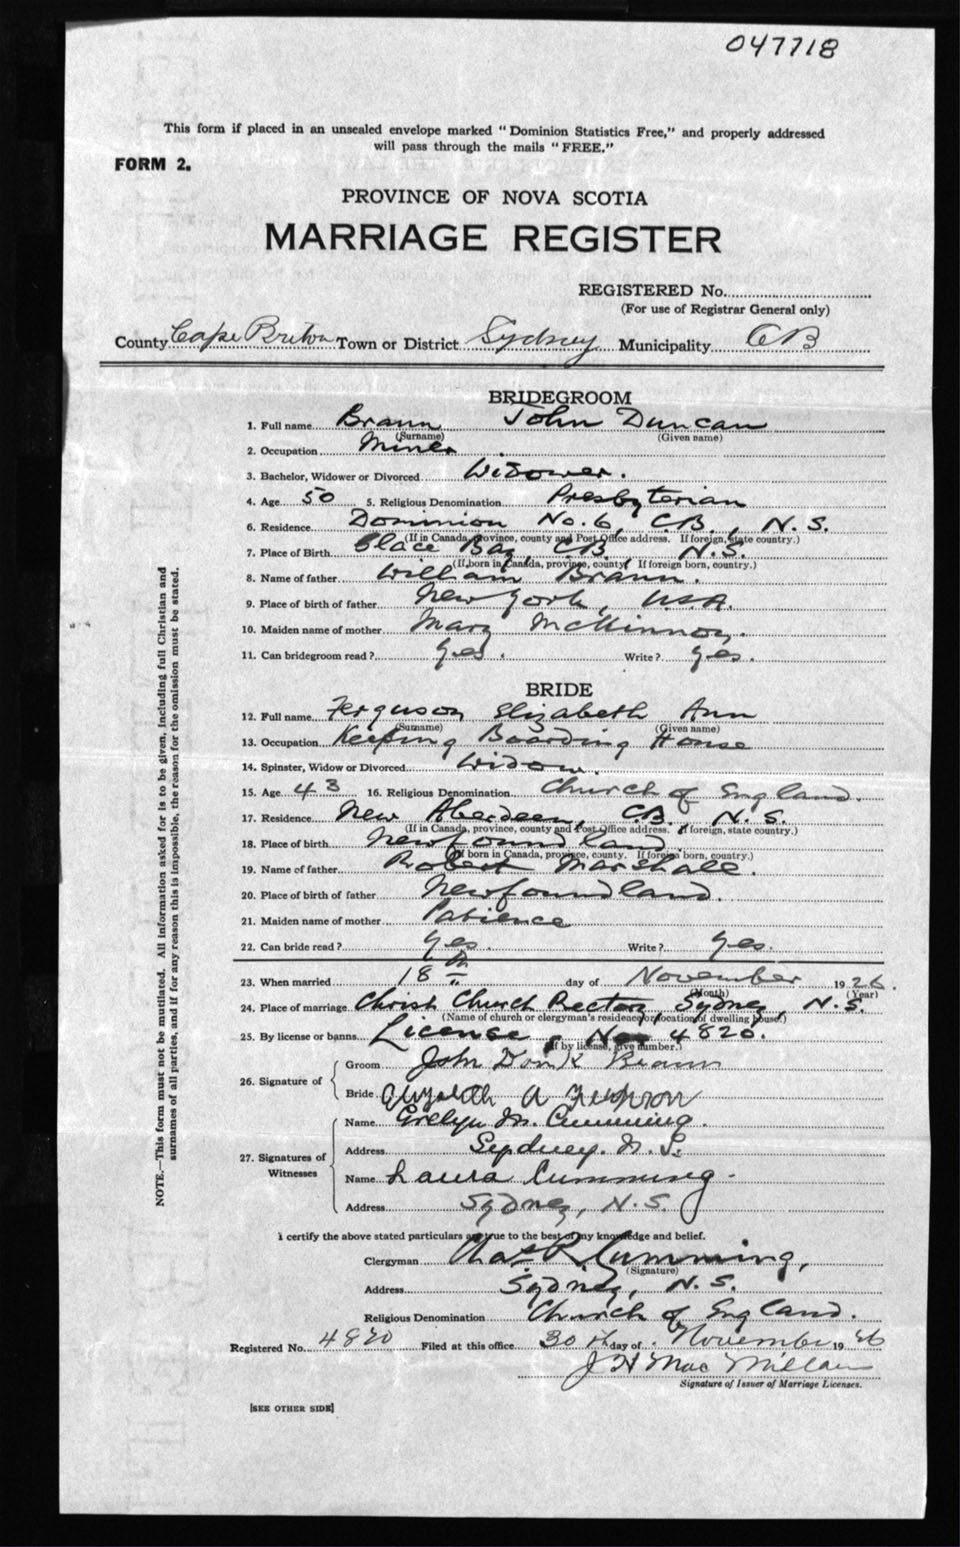 047718
This form if placed in an unsealed envelope marked "Dominion Statistics Free," and properly addressed
will pass through the mails "FREE."
FORM 2.
PROVINCE OF NOVA SCOTIA
MARRIAGE REGISTER
REGISTERED No.
(For use of Registrar General only)
County Cape Breton Town or District Sydney Municipality CB
BRIDEGROOM
1. Full name Braun John Duncan
(Surname) (Given name)
2. Occupation Miner
3. Bachelor, Widower or Divorced Widower.
4. Age 50 5. Religious Denomination Presbyterian
6. Residence Dominion No. 6, CB., N.S.
(If in Canada, province, county and Post Office address. If foreign, state country.)
7. Place of Birth Glace Bay, CB N.S.
(If born in Canada, province, county. If foreign born, country.)
8. Name of father William Braun.
9. Place of birth of father New York, USA.
10. Maiden name of mother Mary McKinnon.
11. Can bridegroom read? Yes. Write? Yes.
BRIDE
12. Full name Ferguson Elizabeth Ann
(Surname) (Given name)
13. Occupation Keeping Boarding House
14. Spinster, Widow or Divorced Widow.
15. Age 43 16. Religious Denomination Church of England.
17. Residence New Aberdeen, C.B. N.S.
(If in Canada, province, county and Post Office address. If foreign, state country.)
18. Place of birth Newfoundland
(If born in Canada, province, county. If foreign born, country.)
19. Name of father Robert Marshall.
20. Place of birth of father Newfoundland.
21. Maiden name of mother Patience
22. Can bride read? Yes. Write? Yes.
23. When married 18th day of November 1926.
(Month) (Year)
24. Place of marriage Christ Church Rectory, Sydney, N.S.
(Name of church or clergyman's residence or location of dwelling house.)
25. By license or banns License, No 4820.
(If by license, give number.)
26. Signature of
Groom John Braun
Bride A
27. Signatures of Witnesses
Name Evelyn M. Cumming.
Address Sydney. N.S.
Name Laura Cumming.
Address Sydney, N.S.
I certify the above stated particulars are true to the best of my knowledge and belief.
Clergyman Chas R. Cumming,
(Signature)
Address Sydney, N.S.
Religious Denomination Church of England.
Registered No. 4820 Filed at this office 30th day of November 1926
J H MacMillan
Signature of Issuer of Marriage Licenses.
[SEE OTHER SIDE]
NOTE.—This form must not be mutilated. All information asked for is to be given, including full Christian and
surnames of all parties, and if for any reason this is impossible, the reason for the omission must be stated.